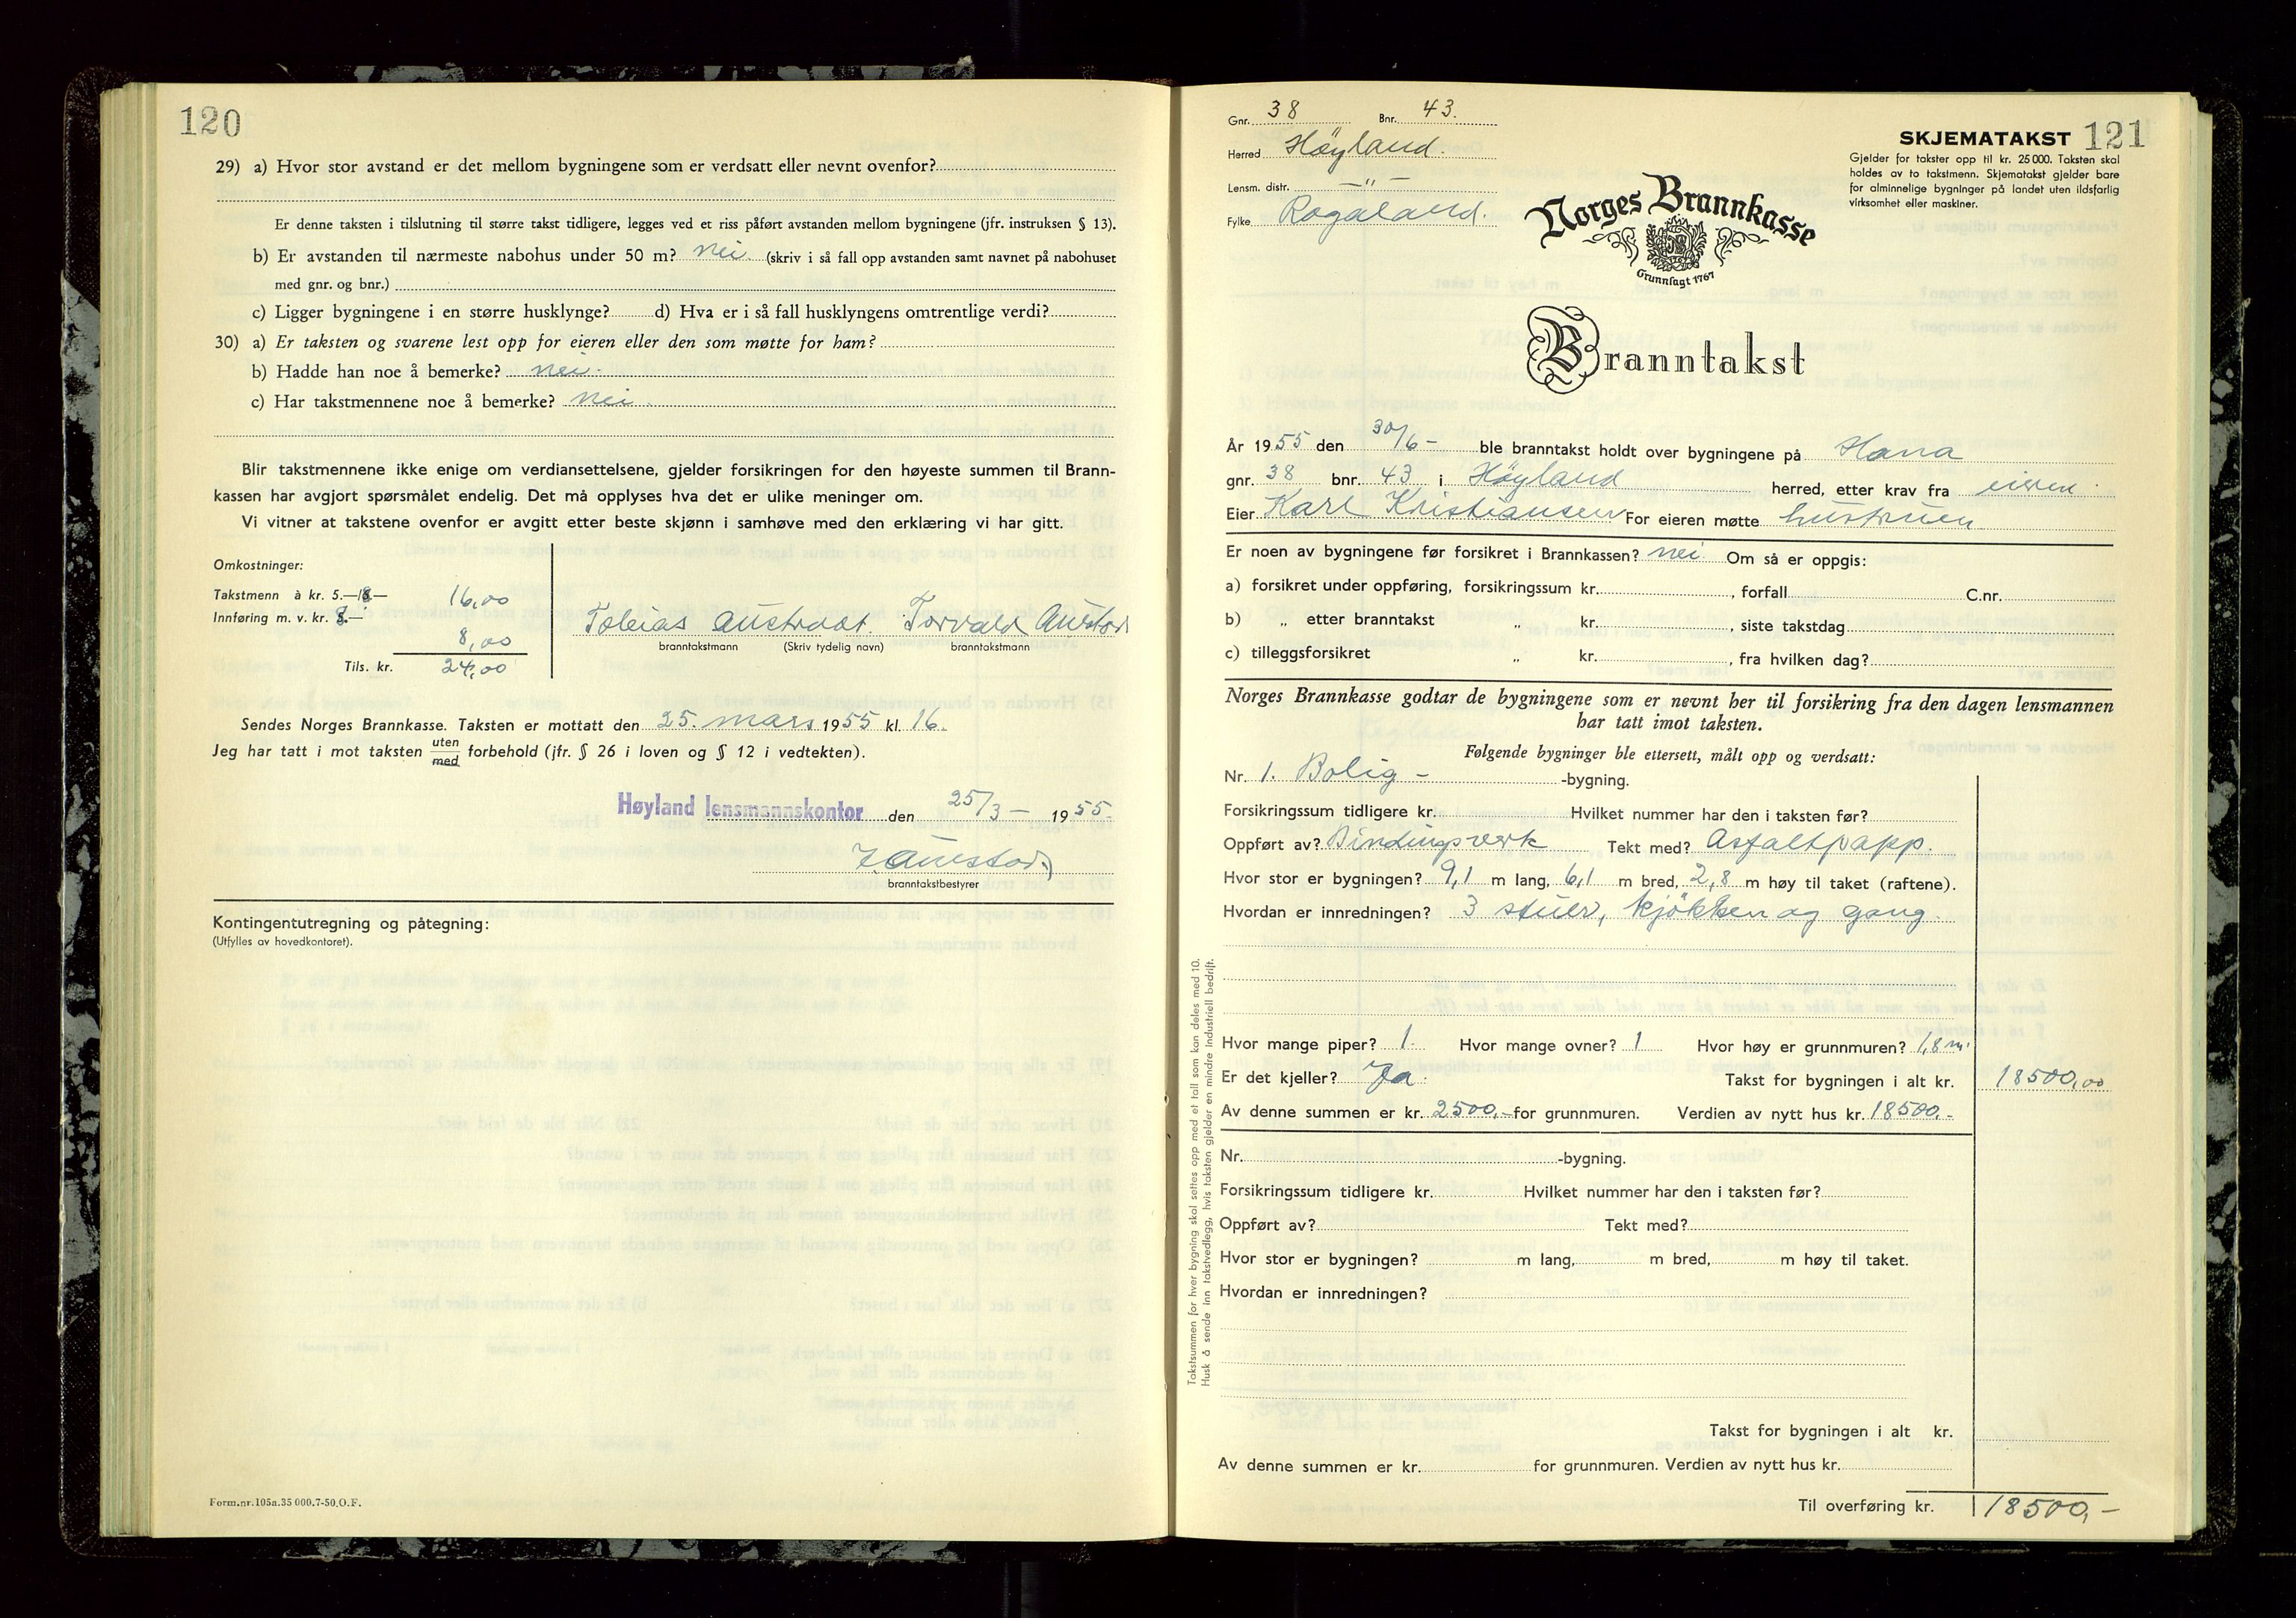 120
29) a) Hvor stor avstand er det mellom bygningene som er verdsatt eller nevnt ovenfor?
Er denne taksten i tilslutning til større takst tidligere, legges ved et riss påført avstanden mellom bygningene (jfr. instruksen § 13).
b) Er avstanden til nærmeste nabohus under 50 m? nei. (skriv i så fall opp avstanden samt navnet på nabohuset
med gnr. og bnr.)
c) Ligger bygningene i en større husklynge? d) Hva er i så fall husklyngens omtrentlige verdi?
30) a) Er taksten og svarene lest opp for eieren eller den som møtte for ham?
b) Hadde han noe å bemerke? nei.
c) Har takstmennene noe å bemerke? nei.
Blir takstmennene ikke enige om verdiansettelsene, gjelder forsikringen for den høyeste summen til Brann-
kassen har avgjort spørsmålet endelig. Det må opplyses hva det er ulike meninger om.
Vi vitner at takstene ovenfor er avgitt etter beste skjønn i samhøve med den erklæring vi har gitt.
Omkostninger:
Takstmenn à kr. 5.—/8.— 16,00
Innføring m. v. kr. 8.—
8,00
Tils. kr. 24,00
Tobias Austrått. Torvald Austad
branntakstmann (Skriv tydelig navn) branntakstmann
Sendes Norges Brannkasse. Taksten er mottatt den 25. mars 1955 kl. 16.
Jeg har tatt i mot taksten uten
med forbehold (jfr. § 26 i loven og § 12 i vedtekten).
Høyland lensmannskontor den 25/3 — 1955.
branntakstbestyrer
Kontingentutregning og påtegning:
(Utfylles av hovedkontoret).
Form.nr.105a.35 000.7-50.O.F.
Gnr. 38 Bnr. 43.
Herred Höyland.
Lensm. distr. —"—
Fylke Rogaland.
SKJEMATAKST 121
Gjelder for takster opp til kr. 25 000. Taksten skal
holdes av to takstmenn. Skjematakst gjelder bare
for alminnelige bygninger på landet uten ildsfarlig
virksomhet eller maskiner.
Norges Brannkasse
Grunnlagt 1767
Branntakst
År 1955 den 30/6 - ble branntakst holdt over bygningene på Hana
gnr. 38 bnr. 43 i Höyland herred, etter krav fra eieren.
Eier Karl Kristiansen For eieren møtte hustruen
Er noen av bygningene før forsikret i Brannkassen? nei. Om så er oppgis:
a) forsikret under oppføring, forsikringssum kr. , forfall C.nr.
b) „ etter branntakst „ kr. , siste takstdag
c) tilleggsforsikret „ kr. , fra hvilken dag?
Norges Brannkasse godtar de bygningene som er nevnt her til forsikring fra den dagen lensmannen
har tatt imot taksten.
Følgende bygninger ble ettersett, målt opp og verdsatt:
Nr. 1. Bolig - -bygning.
Forsikringssum tidligere kr. Hvilket nummer har den i taksten før?
Oppført av? Bindingsverk Tekt med? Asfaltpapp.
Hvor stor er bygningen? 9,1 m lang, 6,1 m bred, 2,8 m høy til taket (raftene).
Hvordan er innredningen? 3 stuer, kjökken og gang.
Hvor mange piper? 1. Hvor mange ovner? 1 Hvor høy er grunnmuren? 1,8 m.
Er det kjeller? Ja. Takst for bygningen i alt kr. 18500,00
Av denne summen er kr. 2500,- for grunnmuren. Verdien av nytt hus kr. 18500,-
Nr. -bygning.
Forsikringssum tidligere kr. Hvilket nummer har den i taksten før?
Oppført av? Tekt med?
Hvor stor er bygningen? m lang, m bred, m høy til taket.
Hvordan er innredningen?
Takst for bygningen i alt kr.
Av denne summen er kr. for grunnmuren. Verdien av nytt hus kr.
Til overføring kr. 18500,-
Takstsummen for hver bygning skal settes opp med et tall som kan deles med 10.
Husk å sende inn takstvedlegg, hvis taksten gjelder en mindre industriell bedrift.